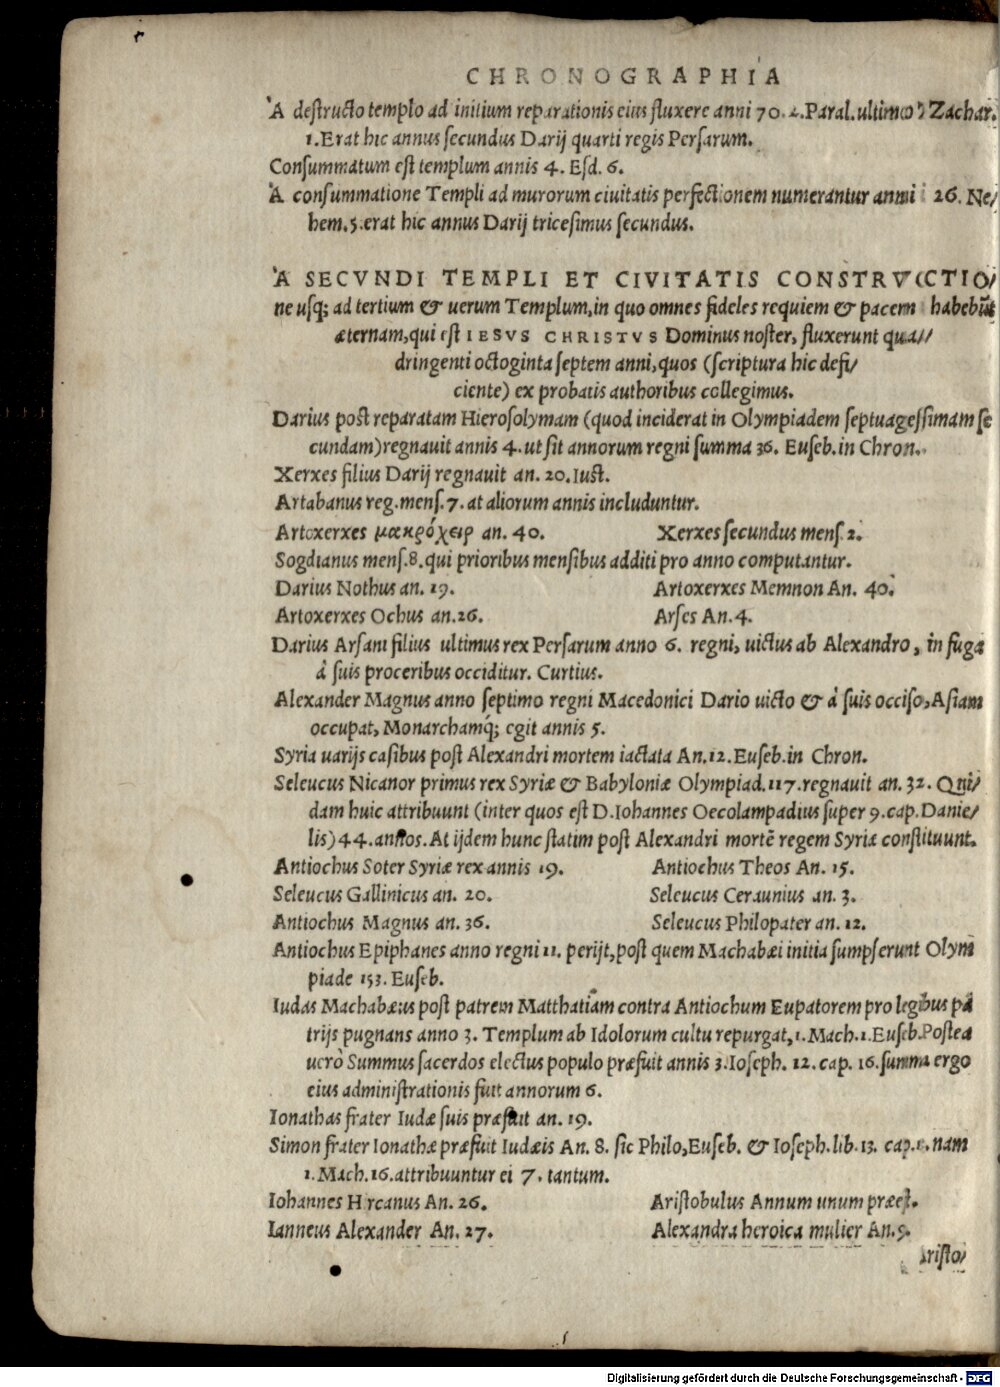 CHRONOGRAPHIA
A destructo templo ad initium reparationis eius fluxere anni 70. 2. Paral. ultimo & Zachar.
1. Erat hic annus secundus Darij quarti regis Persarum.
Consummatum est templum annis 4. Esd. 6.
A consummatione Templi ad murorum ciuitatis perfectionem numerantur anni 26. Ne/
hem. 5. erat hic annus Darij tricesimus secundus.
A SECVNDI TEMPLI ET CIVITATIS CONSTRVCTIO/
ne usq; ad tertium & uerum Templum, in quo omnes fideles requiem & pacem habebūt
æternam, qui est IESVS CHRISTVS Dominus noster, fluxerunt qua//
dringenti octoginta septem anni, quos (scriptura hic defi/
ciente) ex probatis authoribus collegimus.
Darius post reparatam Hierosolymam (quod inciderat in Olympiadem septuagessimam se
cundam) regnauit annis 4. ut sit annorum regni summa 36. Euseb. in Chron.
Xerxes filius Darij regnauit an. 20. Iust.
Artabanus reg. mens. 7. at aliorum annis includuntur.
Artoxerxes μακρόχειρ an. 40. Xerxes secundus mens. 2.
Sogdianus mens. 8. qui prioribus mensibus additi pro anno computantur.
Darius Nothus an. 19. Artoxerxes Memnon An. 40.
Artoxerxes Ochus an. 26. Arses An. 4.
Darius Arsani filius ultimus rex Persarum anno 6. regni, uictus ab Alexandro, in fuga
à suis proceribus occiditur. Curtius.
Alexander Magnus anno septimo regni Macedonici Dario uicto & à suis occiso, Asiam
occupat, Monarcham�q́; egit annis 5.
Syria uarijs casibus post Alexandri mortem iactata An. 12. Euseb. in Chron.
Seleucus Nicanor primus rex Syriæ & Babyloniæ Olympiad. 117. regnauit an. 32. Qui/
dam huic attribuunt (inter quos est D. Iohannes Oecolampadius super 9. cap. Danie/
lis) 44. annos. At ijdem hunc statim post Alexandri mortē regem Syriæ constituunt.
Antiochus Soter Syriæ rex annis 19. Antiochus Theos An. 15.
Seleucus Gallinicus an. 20. Seleucus Ceraunius an. 3.
Antiochus Magnus an. 36. Seleucus Philopater an. 12.
Antiochus Epiphanes anno regni 11. perijt, post quem Machabæi initia sumpserunt Olym
piade 153. Euseb.
Iudas Machabæus post patrem Matthatiam contra Antiochum Eupatorem pro legibus pa
trijs pugnans anno 3. Templum ab Idolorum cultu repurgat, 1. Mach. 1. Euseb. Postea
uerò Summus sacerdos electus populo præfuit annis 3. Ioseph. 12. cap. 16. summa ergo
eius administrationis fuit annorum 6.
Ionathas frater Iudæ suis præfuit an. 19.
Simon frater Ionathæ præfuit Iudæis An. 8. sic Philo, Euseb. & Ioseph. lib. 13. cap. nam
1. Mach. 16. attribuuntur ei 7. tantum.
Iohannes Hircanus An. 26. Aristobulus Annum unum præest.
Ianneus Alexander An. 27. Alexandra heroica mulier An. 9.
Aristo/
Digitalisierung gefördert durch die Deutsche Forschungsgemeinschaft - DFG